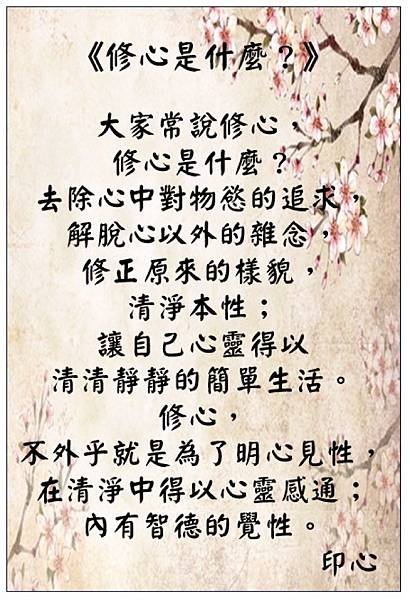 《修心是什麼？》
大家常說修心，
修心是什麼？
去除心中對物慾的追求，
解脫心以外的雜念，
修正原來的樣貌，
清淨本性；
讓自己心靈得以
清清靜靜的簡單生活。
修心，
不外乎就是為了明心見性，
在清淨中得以心靈感通；
內有智德的覺性。
印心